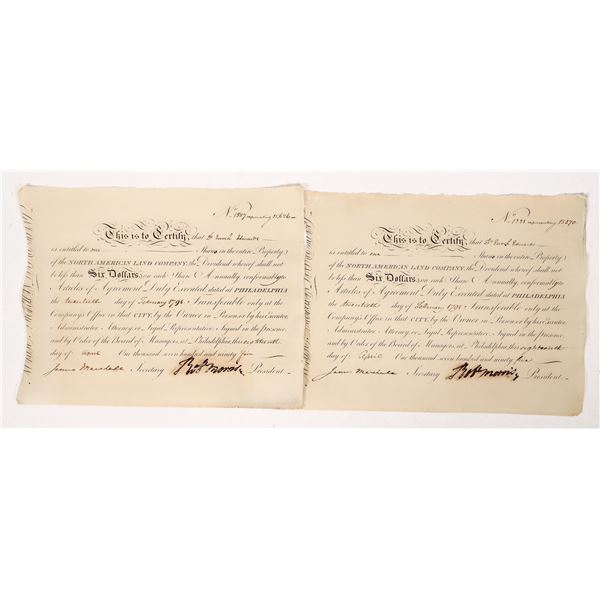 No. 1807
This is to Certify, that
is entitled to one Share in the entire Property
of the NORTH AMERICAN LAND COMPANY; the Dividend whereof shall not
be less than Six Dollars, on each Share Annually, conformably to
Articles of Agreement Duly Executed dated at PHILADELPHIA
the twentieth day of February 1795 Transferable only at the
Company's Office in that CITY, by the Owner in Person or by his Executor,
Administrator, Attorney or Legal Representative, Signed in the presence,
and by Order of the Board of Managers, at Philadelphia, this eighteenth
day of April One thousand seven hundred and ninety five
James Marshall Secretary Robt Morris President
No.
This is to Certify, that
is entitled to one Share in the entire Property
of the NORTH AMERICAN LAND COMPANY; the Dividend whereof shall not
be less than Six Dollars, on each Share Annually, conformably to
Articles of Agreement Duly Executed dated at PHILADELPHIA
the twentieth day of February 1795 Transferable only at the
Company's Office in that CITY, by the Owner in Person or by his Executor,
Administrator, Attorney or Legal Representative, Signed in the presence,
and by Order of the Board of Managers, at Philadelphia, this eighteenth
day of April One thousand seven hundred and ninety five
James Marshall Secretary Robt Morris President